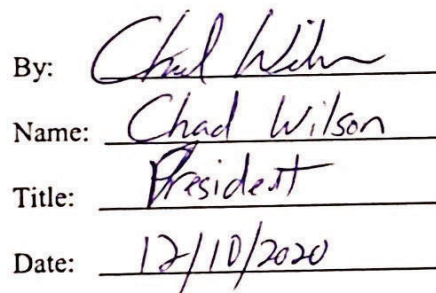 By: Chad Wilson
Name: Chad Wilson
Title: President
Date: 12/10/2020